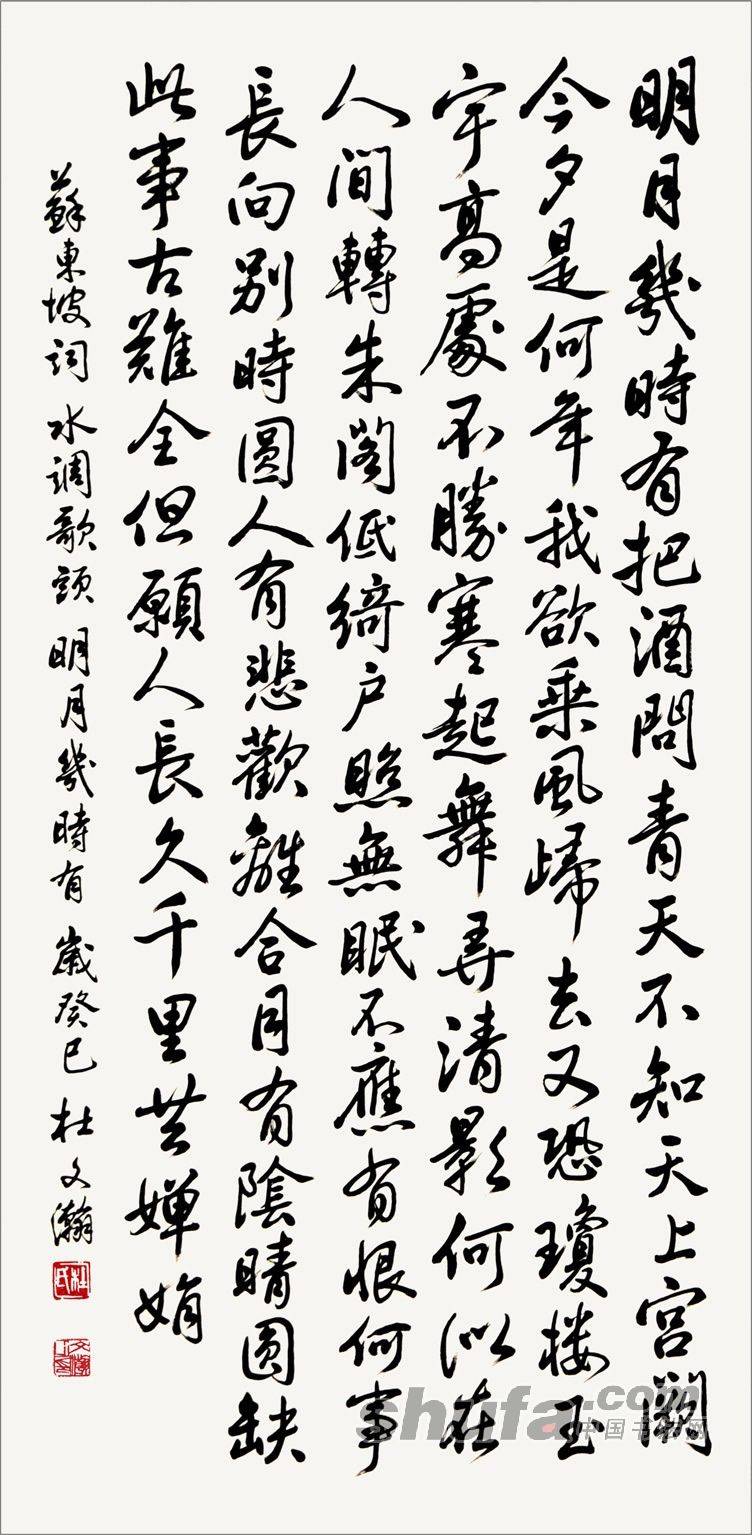 明月幾時有把酒問青天不知天上宮闕
今夕是何年我欲乘風歸去又恐瓊楼玉
宇高處不勝寒起舞弄清影何似在
人間轉朱閣低綺户照無眠不應有恨何事
長向别時圓人有悲歡離合月有陰晴圓缺
此事古難全但願人長久千里共嬋娟
蘇東坡詞 水調歌頭 明月幾時有 歲癸巳 杜文瀚
杜氏
shufa.com
中国书法网